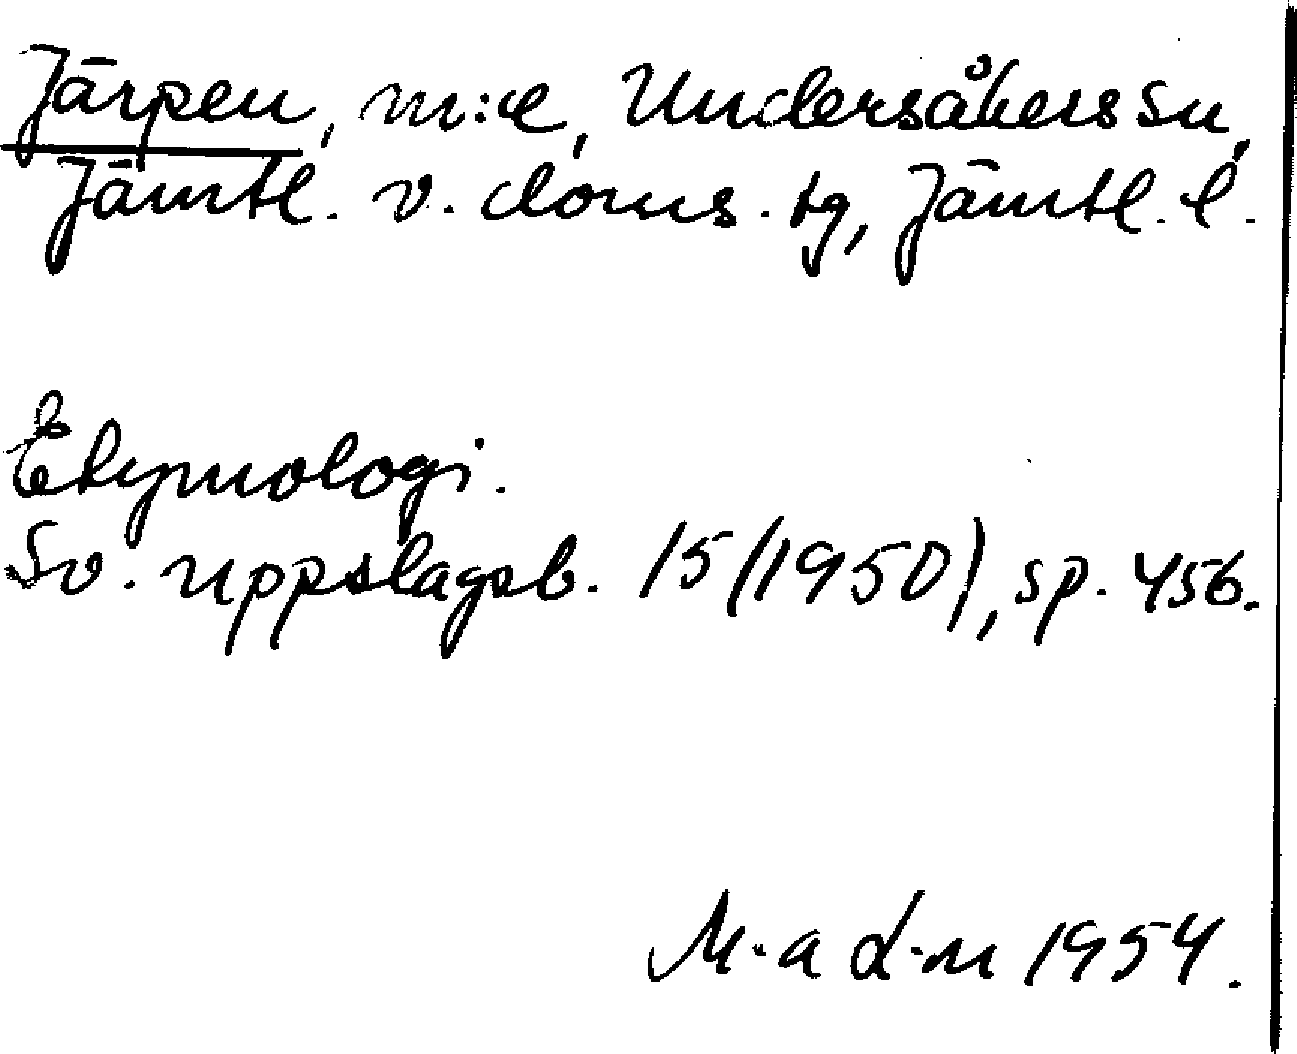 Järpen, m:e, Undersåkers sn,
Jämtl. v. doms. tg, Jämtl. l.
Etymologi.
Sv. uppslagsb. 15 (1950), sp. 456.
M-a d-m 1954.